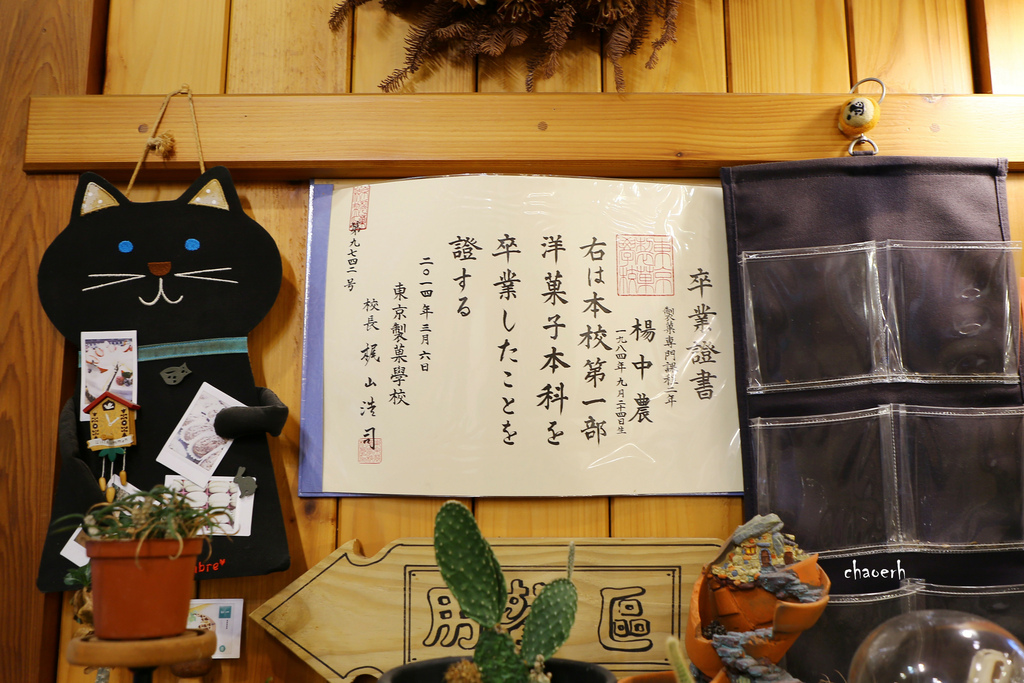 卒業證書
製菓專門課程二年
楊中農
一九八四年九月二十四日生
右は本校第一部
洋菓子本科を
卒業したことを
證する
二〇一四年三月六日
東京製菓學校
校長 梶山浩司
第九七四二号
用餐區
chaoerh